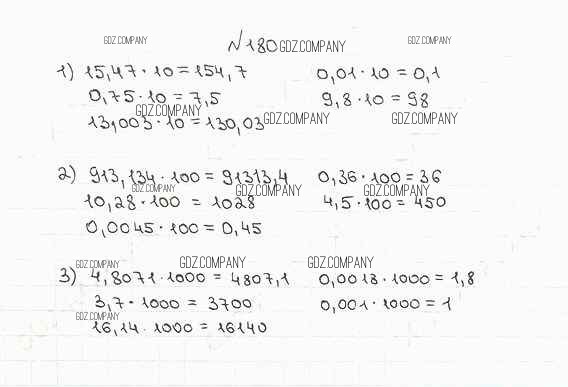 GDZ.COMPANY GDZ.COMPANY
№180 GDZ.COMPANY
1) 15,47 · 10 = 154,7 0,01 · 10 = 0,1
0,75 · 10 = 7,5 9,8 · 10 = 98
GDZ.COMPANY
13,003 · 10 = 130,03 GDZ.COMPANY GDZ.COMPANY
2) 913,134 · 100 = 91313,4 0,36 · 100 = 36
GDZ.COMPANY GDZ.COMPANY GDZ.COMPANY
10,28 · 100 = 1028 4,5 · 100 = 450
0,0045 · 100 = 0,45
GDZ.COMPANY GDZ.COMPANY GDZ.COMPANY
3) 4,8071 · 1000 = 4807,1 0,0018 · 1000 = 1,8
3,7 · 1000 = 3700 0,001 · 1000 = 1
GDZ.COMPANY
16,14 · 1000 = 16140